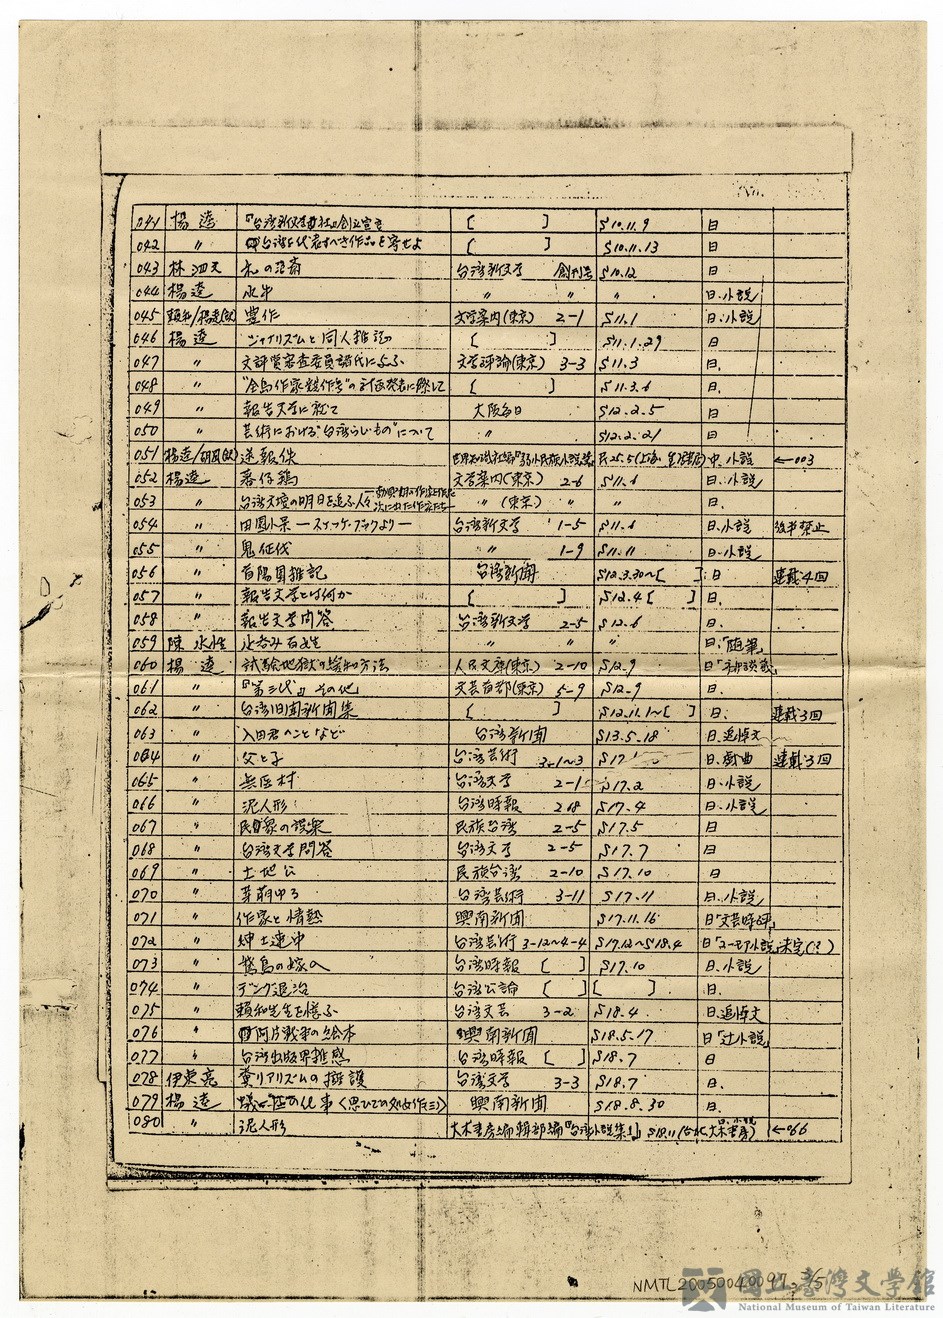 No.
041 楊逵 『台湾新文学社』創立宣言 [ ] S10.11.9 日
042 〃 台湾を代表すべき作品を寄せよ [ ] S10.11.13 日
043 林泗文 台湾新文学 創刊号 S10.12 日
044 楊逵 水牛 〃 〃 〃 日.小説
045 頼和/楊逵(訳) 豊作 文学案内(東京) 2-1 S11.1 日.小説
046 楊逵 ジャナリズムと同人雑誌 [ ] S11.1.29 日
047 〃 文評賞審査委員諸氏に与ふ 文学評論(東京) 3-3 S11.3 日
048 〃 "全島作家競作号"の計画発表に際して [ ] S11.3.6 日
049 〃 報告文学に就て 大阪毎日 S12.2.5 日
050 〃 芸術における"台湾らしいもの"について 〃 S12.2.21 日
051 楊逵/胡風(訳) 送報伕 世界知識社編『弱小民族小説選』 民25.5(上海・生活書店) 中.小説 ←003
052 楊逵 蕃仔鶏 文学案内(東京) 2-6 S11.6 日.小説
053 〃 台湾文壇の明日を担ふ人々 〃(東京) 〃 〃 日.
054 〃 田園小景 ―スケッチ・ブックより― 台湾新文学 1-5 S11.6 日.小説 後半禁止
055 〃 鬼征伐 〃 1-9 S11.11 日.小説
056 〃 首陽園雑記 台湾新聞 S12.3.30〜[ ] 日 連載4回
057 〃 報告文学とは何か [ ] S12.4[ ] 日.
058 〃 報告文学問答 台湾新文学 2-5 S12.6 日.
059 陳水性 水呑み百姓 〃 〃 〃 日.「随筆」
060 楊逵 試験地獄の 方法 人民文庫(東京) 2-10 S12.9 日
061 〃 『第三代』その他 文芸首都(東京) 5-9 S12.9 日
062 〃 台湾旧聞新聞集 [ ] S12.11.1〜[ ] 日. 連載3回
063 〃 入田君のことなど 台湾新聞 S13.5.18 日.追悼文
064 〃 父と子 台湾芸術 3-1〜3 S17.1 日.戯曲 連載3回
065 〃 無医村 台湾文学 2-1 S17.2 日.小説
066 〃 泥人形 台湾時報 268 S17.4 日.小説
067 〃 民衆の娯楽 民族台湾 2-5 S17.5 日
068 〃 台湾文学問答 台湾文学 2-5 S17.7 日
069 〃 土地公 民族台湾 2-10 S17.10 日
070 〃 芽萌ゆる 台湾芸術 3-11 S17.11 日.小説
071 〃 作家と情熱 興南新聞 S17.11.16 日「文芸時評」
072 〃 紳士連中 台湾芸術 3-12〜4-4 S17.12〜S18.4 日「ユーモア小説」未完(?)
073 〃 鵞鳥の嫁入 台湾時報 [ ] S17.10 日.小説
074 〃 デング退治 台湾公論 [ ] [ ] 日.
075 〃 頼和先生を憶ふ 台湾文芸 3-2 S18.4 日.追悼文
076 〃 阿片戦争の絵本 興南新聞 S18.5.17 日「辻小説」
077 〃 台湾出版界雑感 台湾時報 [ ] S18.7 日
078 伊東亮 糞リアリズムの擁護 台湾文学 3-3 S18.7 日.
079 楊逵 蟻一匹の仕事〈思ひでの処女作(三)〉 興南新聞 S18.8.30 日.
080 〃 泥人形 大木書房編輯部編『台湾小説集1』 S18.11(台北,大木書房) 日.小説 ←066
NMTL20050040097-3/5
國立臺灣文學館
National Museum of Taiwan Literature